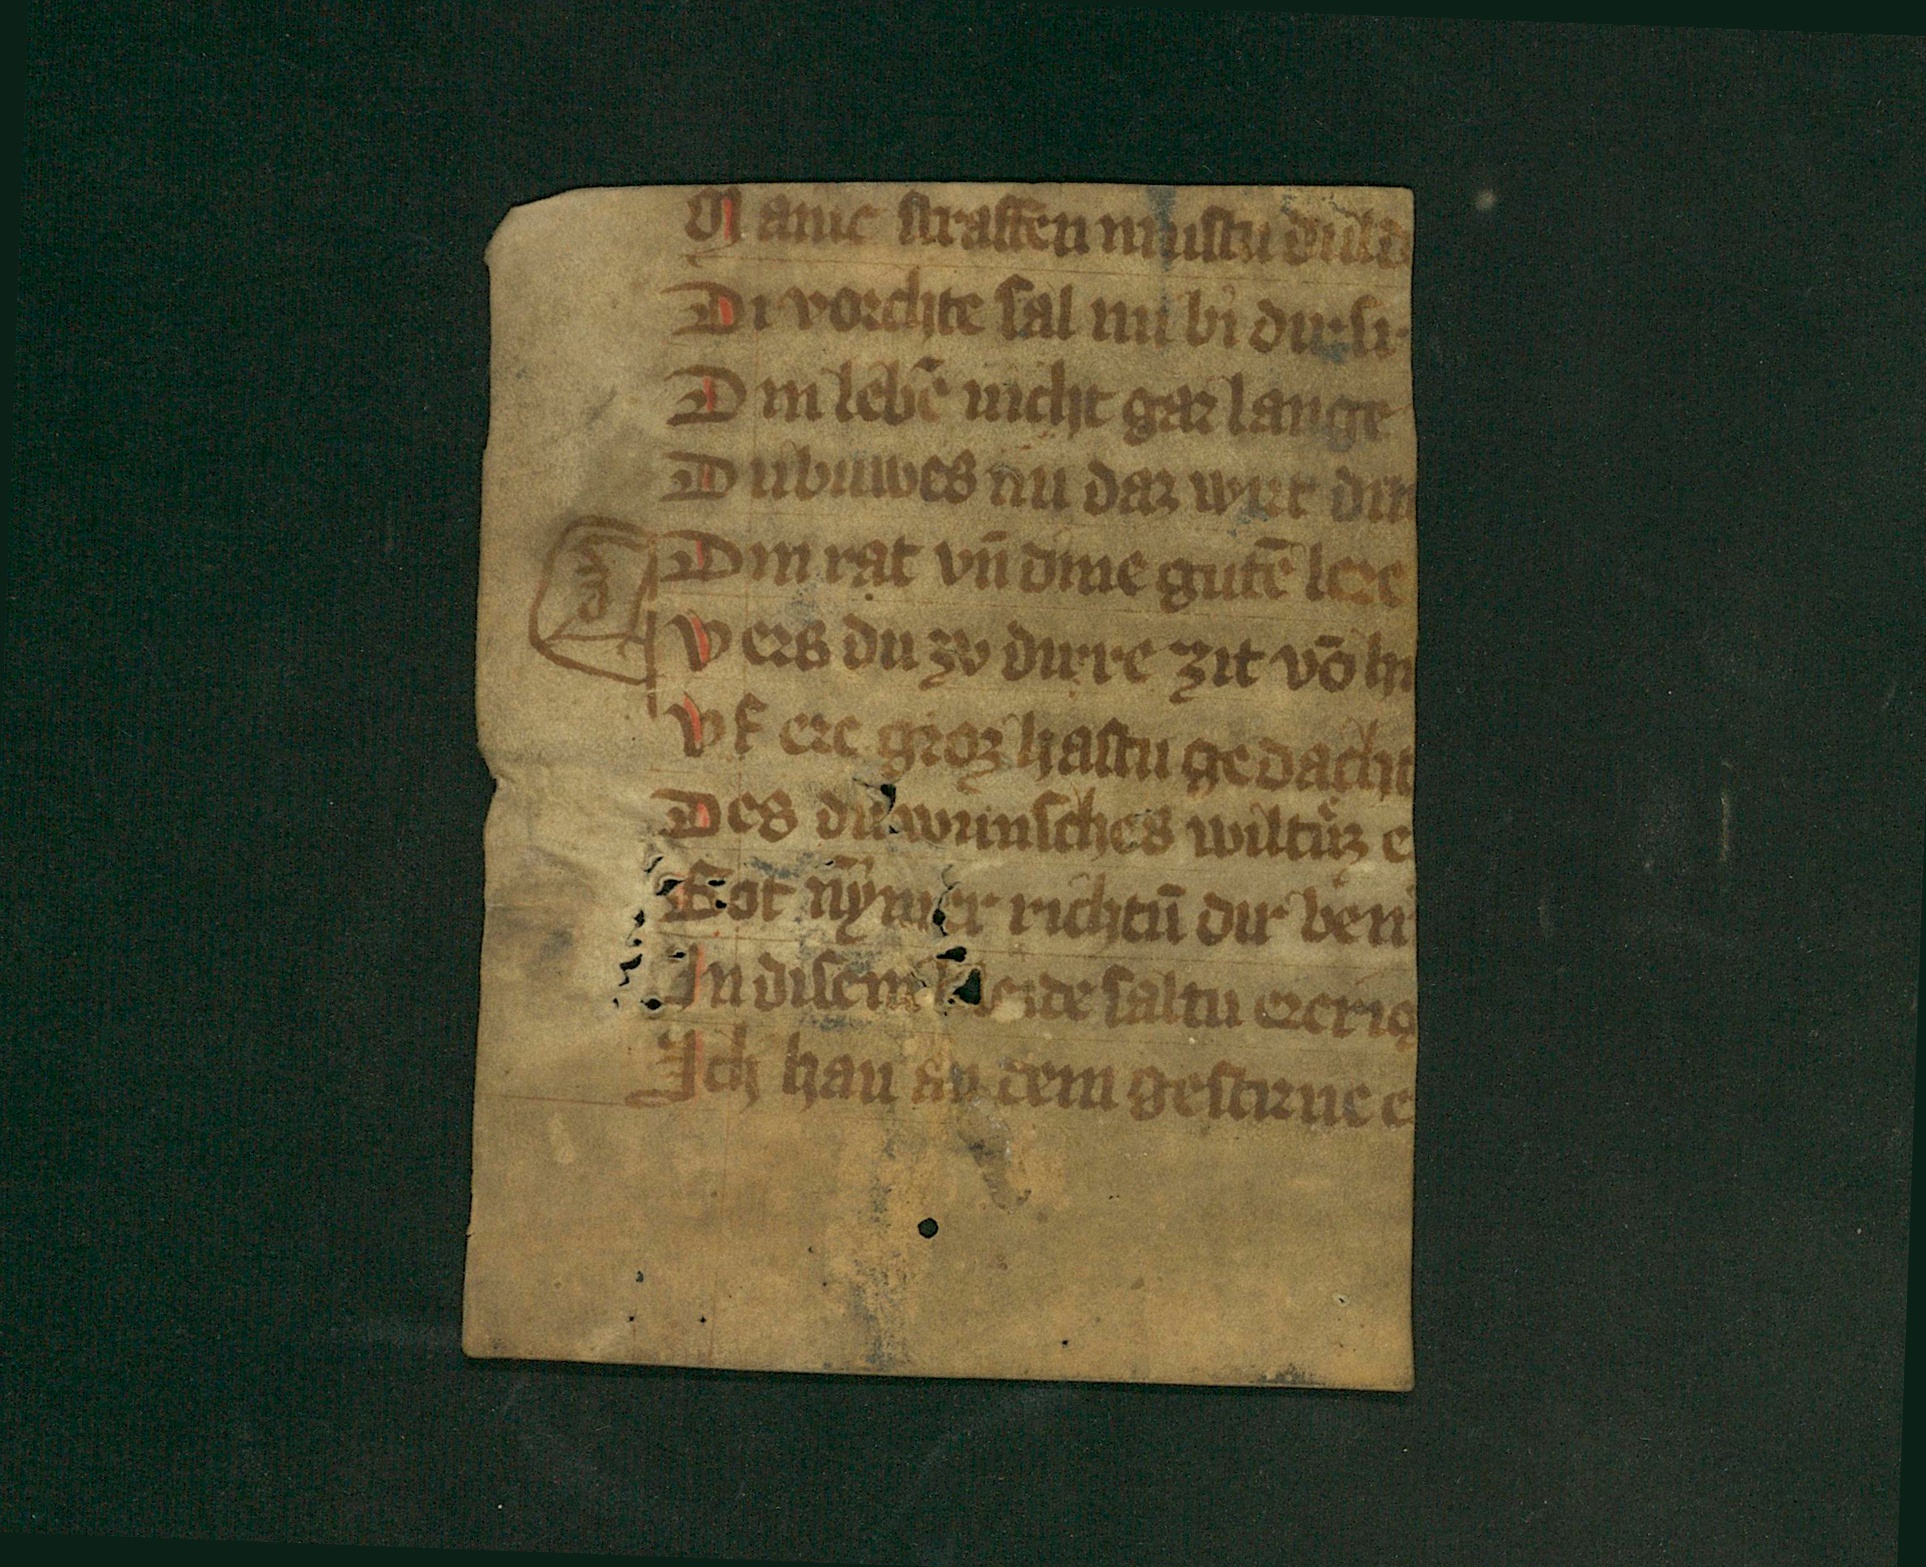 Manic straffen mustu duld
Di vorchte sal nu bi dir si
Din lebē nicht gar lange
Du buwes nu dar wirt din
Din rat vn̄ dine gutē lere
Vers du zv dirre zit vō hi
Vf ere groz hastu gedacht
Des du wunsches wiltuz e
Got nȳmer richtū dir ben
In disem werde saltu ere rig
Ich han an dem gestirne e